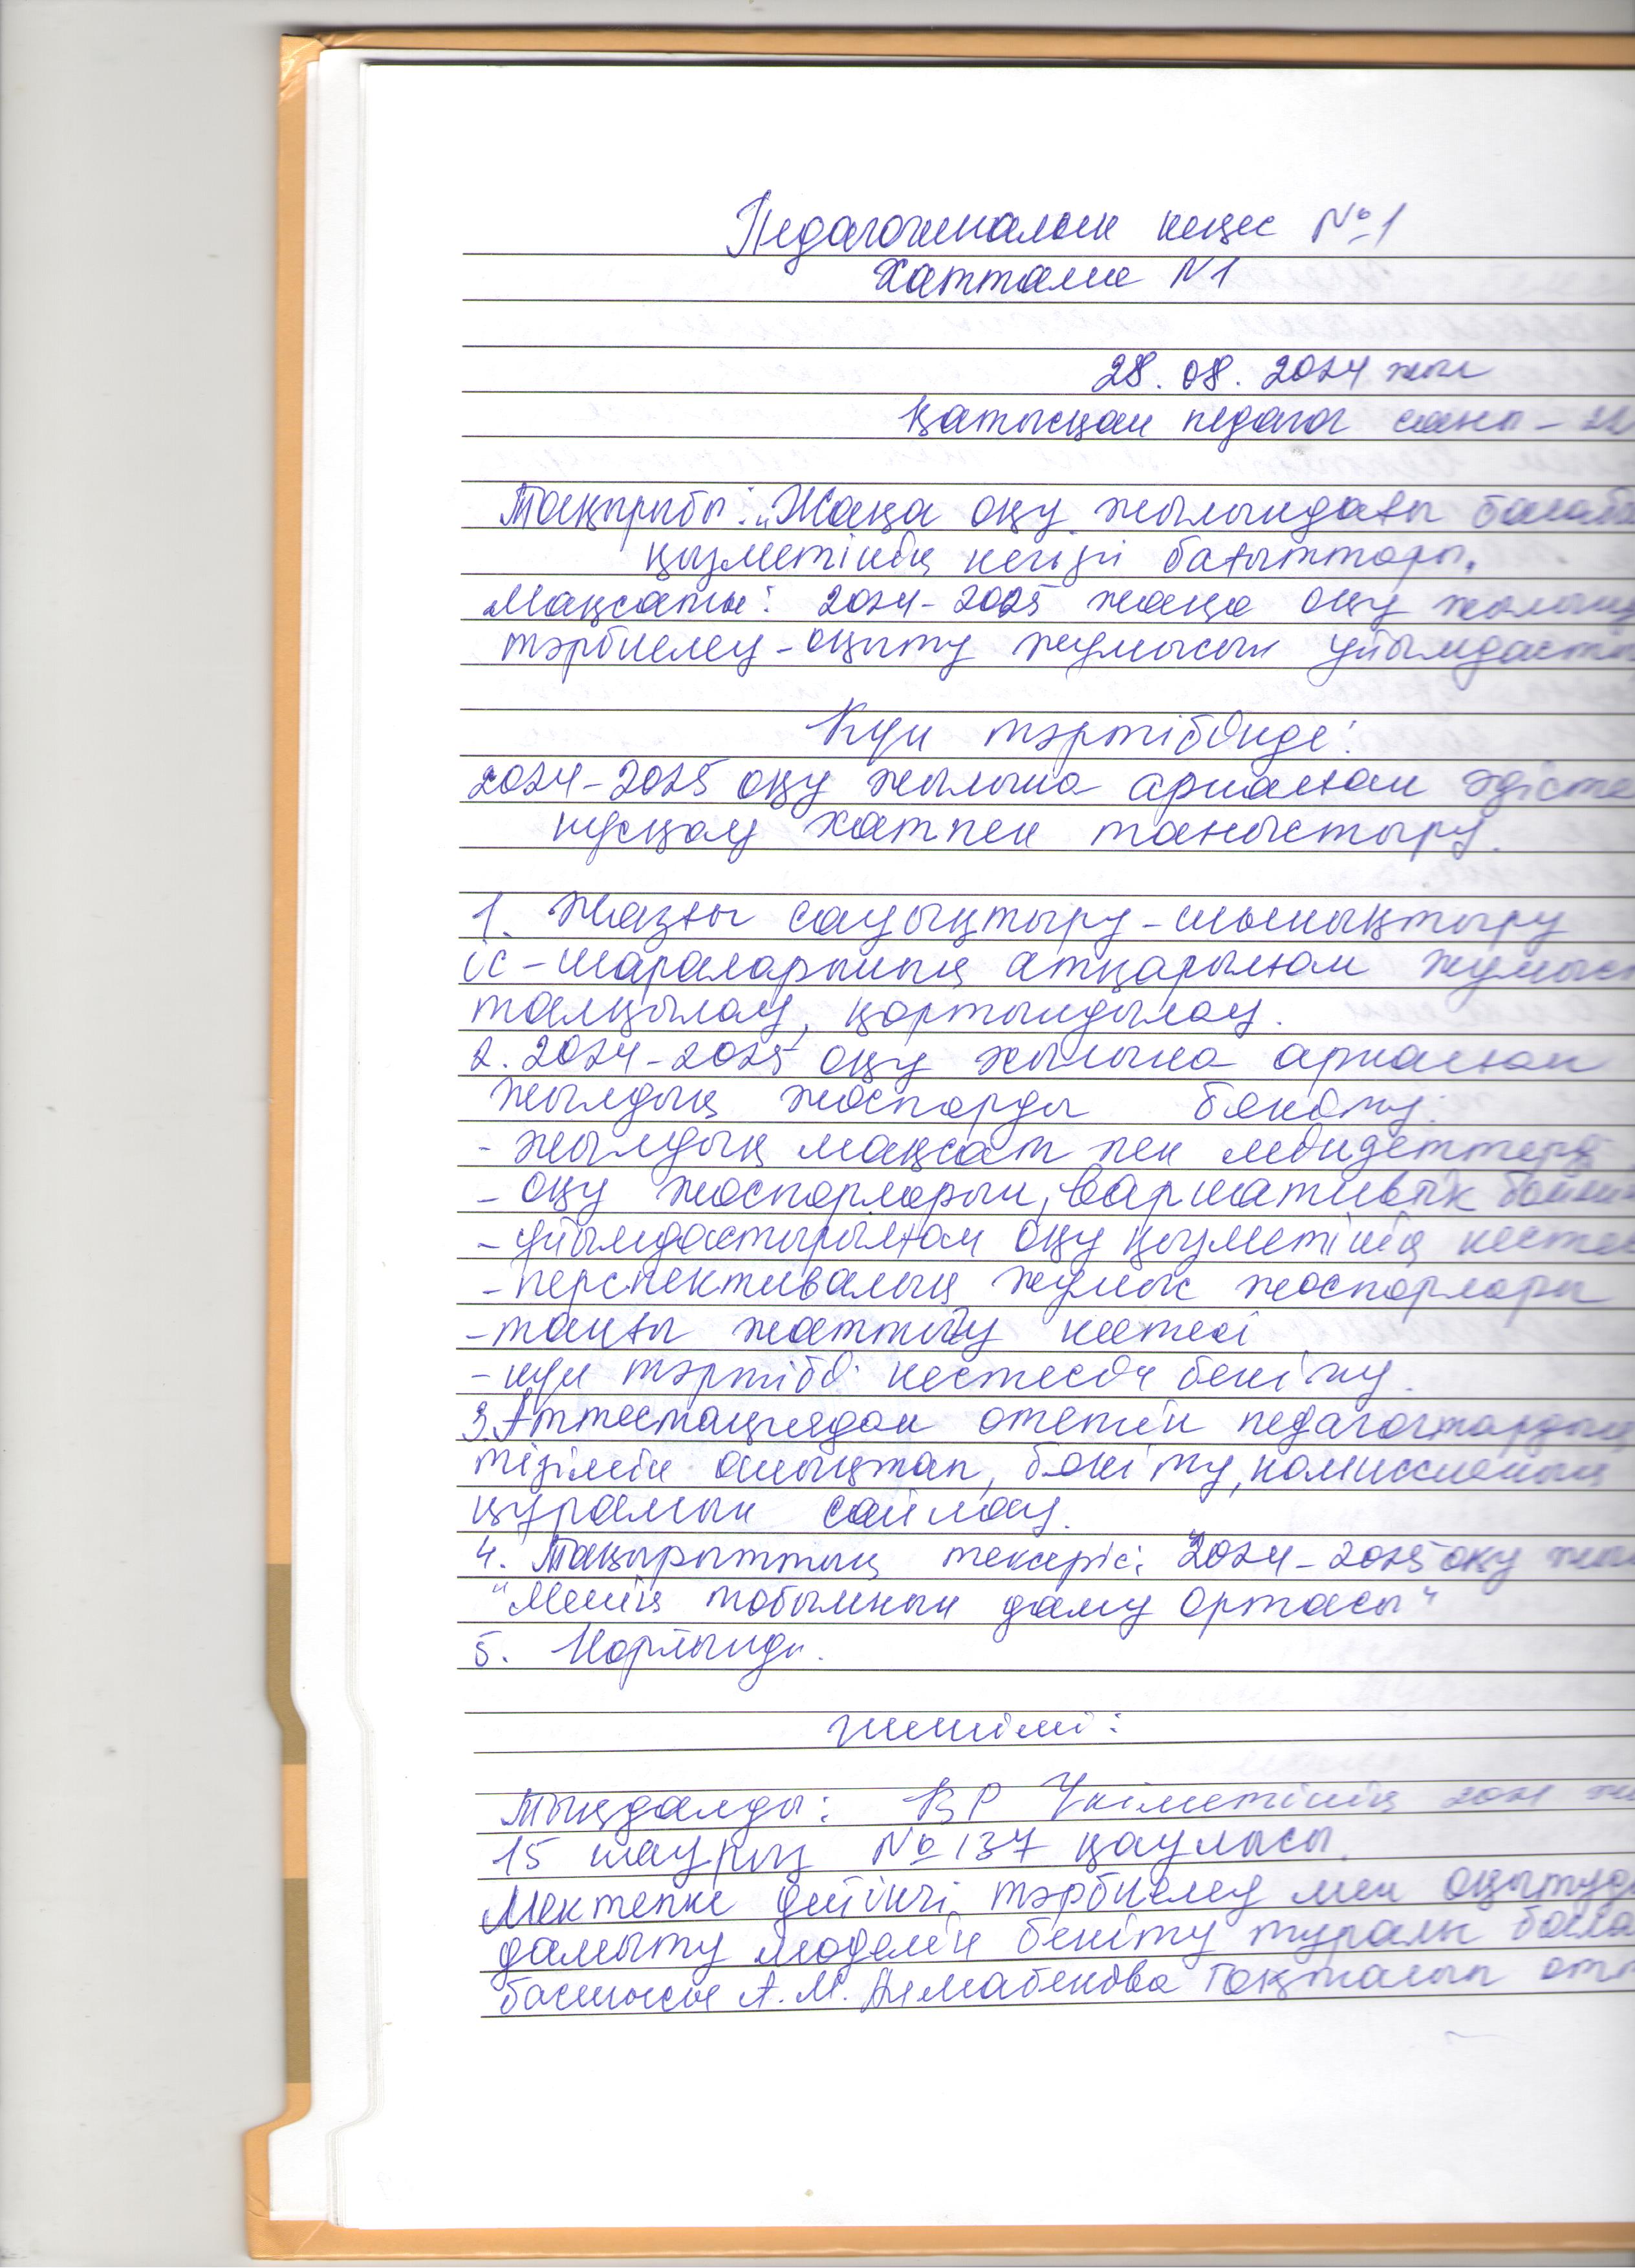 Педагогикалық кеңес №1
Хаттама N1
28. 08. 2024 жыл
Қатысқан педагог саны -
Тақырыбы: „Жаңа оқу жылындағы
қызметінің негізгі бағыттары.
Мақсаты: 2024-2025 жаңа оқу
тәрбиелеу-оқыту жұмысын ұйымдасты
Күн тәртібінде:
2024-2025 оқу жылына арналған әдісте
нұсқау хатпен таныстыру.
1. Жазғы сауықтыру-шынықтыру
іс-шараларының атқарылған жұмыс
талқылау, қортындылау.
2. 2024-2025 оқу жылына арналған
жылдық жоспарды бекіту:
- жылдық мақсат пен міндеттері
- оқу жоспарларын, вариативтік
- ұйымдастырылған оқу қызметінің кесте
- перспективалық жұмыс жоспарлары
- таңғы жаттығу кестесі
- күн тәртібі кестесін бекіту.
3. Аттестациядан өтетін педагогтардың
тізімін анықтап, бекіту, комиссияның
құрамын сайлау.
4. Тақырыптық тексеріс: 2024-2025 оқу
"Менің тобымның даму ортасы"
5. Қортынды.
Шешімі:
Тыңдалды: ҚР Үкіметінің 2021
15 наурыз №137 қаулысы.
Мектепке дейінгі тәрбиелеу мен оқытуды
дамыту моделін бекіту туралы
басшысы А. М. тоқталып өтт